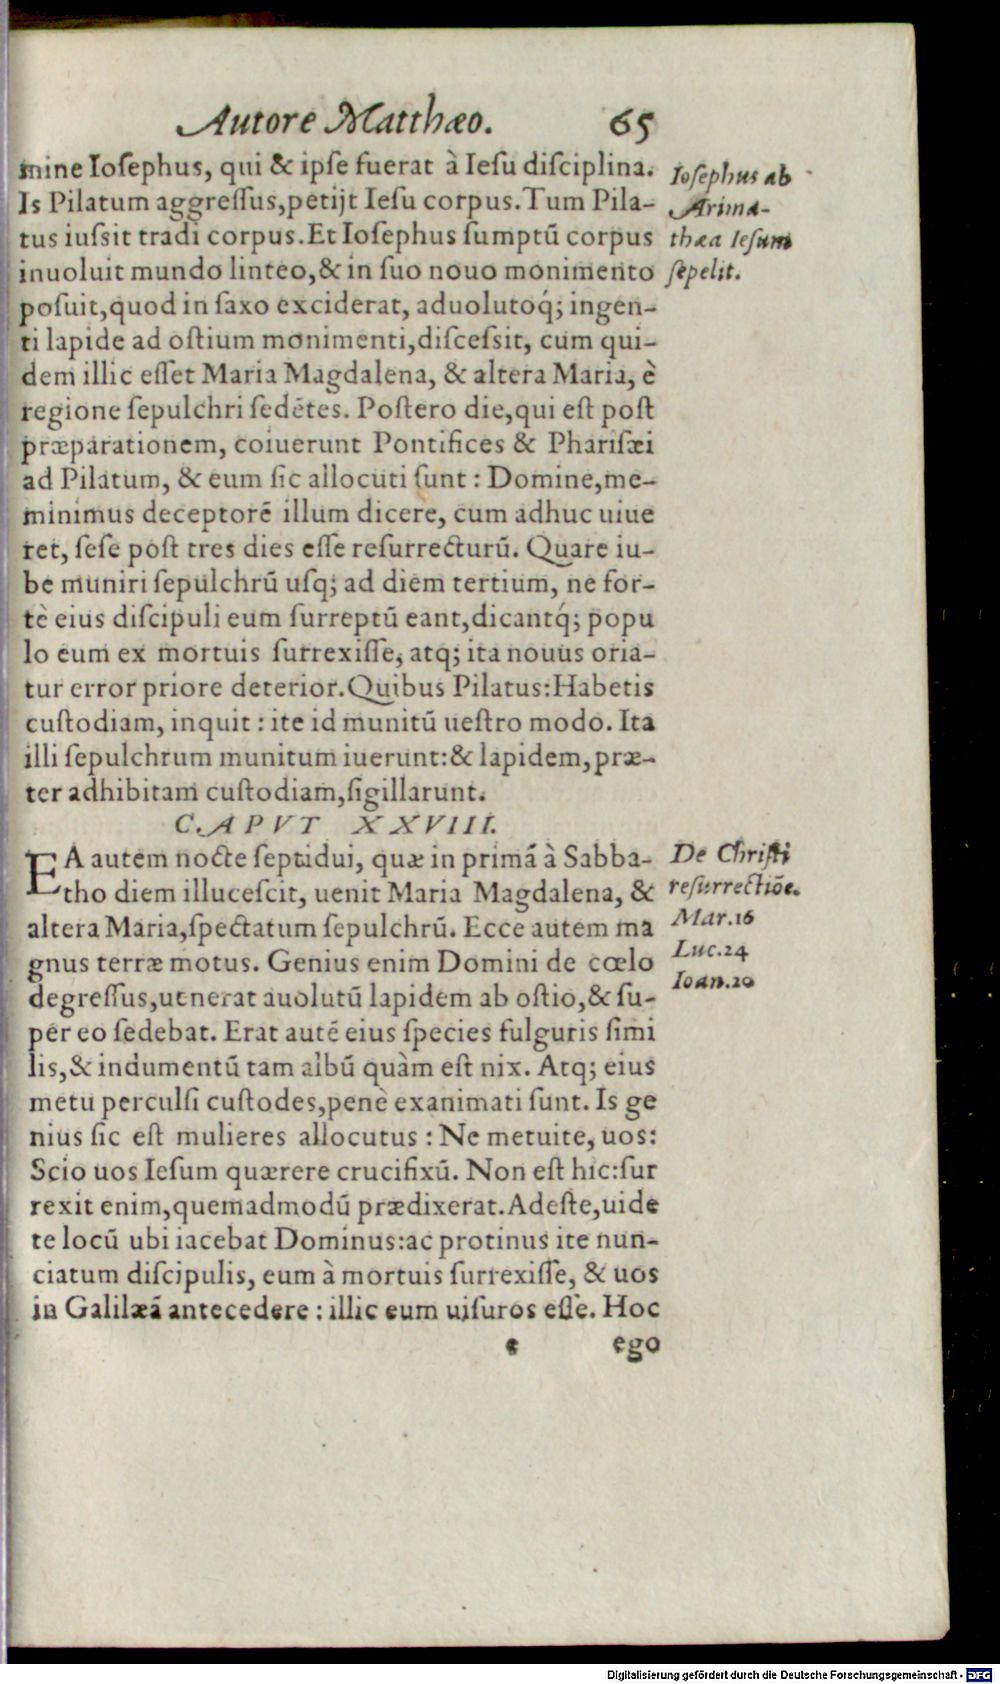 Autore Matthæo. 65
mine Iosephus, qui & ipſe fuerat à Ieſu diſciplina.
Is Pilatum aggreſſus, petijt Ieſu corpus. Tum Pila-
tus iuſsit tradi corpus. Et Ioſephus ſumptū corpus
inuoluit mundo linteo, & in ſuo nouo monimento
poſuit, quod in ſaxo exciderat, aduolutoq́; ingen-
ti lapide ad oſtium monimenti, diſceſsit, cum qui-
dem illic eſſet Maria Magdalena, & altera Maria, è
regione ſepulchri ſedētes. Poſtero die, qui eſt poſt
præparationem, coiuerunt Pontifices & Phariſæi
ad Pilatum, & eum ſic allocuti ſunt: Domine, me-
minimus deceptorē illum dicere, cum adhuc uiue
ret, ſeſe poſt tres dies eſſe reſurrecturū. Quare iu-
be muniri ſepulchrū uſq; ad diem tertium, ne for-
tè eius diſcipuli eum ſurreptū eant, dicantq́; popu
lo eum ex mortuis ſurrexiſſe, atq; ita nouus oria-
tur error priore deterior. Quibus Pilatus: Habetis
cuſtodiam, inquit: ite id munitū ueſtro modo. Ita
illi ſepulchrum munitum iuerunt: & lapidem, præ-
ter adhibitam cuſtodiam, ſigillarunt.
Ioſephus ab
Arima-
thæa Ieſum
ſepelit.
CAPVT XXVIII.
EA autem nocte ſeptidui, quæ in primā à Sabba-
tho diem illuceſcit, uenit Maria Magdalena, &
altera Maria, ſpectatum ſepulchrū. Ecce autem ma
gnus terræ motus. Genius enim Domini de cœlo
degreſſus, uenerat auolutū lapidem ab oſtio, & ſu-
per eo ſedebat. Erat autē eius ſpecies fulguris ſimi
lis, & indumentū tam albū quàm eſt nix. Atq; eius
metu perculſi cuſtodes, penè exanimati ſunt. Is ge
nius ſic eſt mulieres allocutus: Ne metuite, uos:
Scio uos Ieſum quærere crucifixū. Non eſt hic: ſur
rexit enim, quemadmodū prædixerat. Adeſte, uide
te locū ubi iacebat Dominus: ac protinus ite nun-
ciatum diſcipulis, eum à mortuis ſurrexiſſe, & uos
in Galilæā antecedere: illic eum uiſuros eſſe. Hoc
De Chriſti
reſurrectiōe.
Mar.16
Luc.24
Ioan.20
e ego
Digitalisierung gefördert durch die Deutsche Forschungsgemeinschaft - DFG